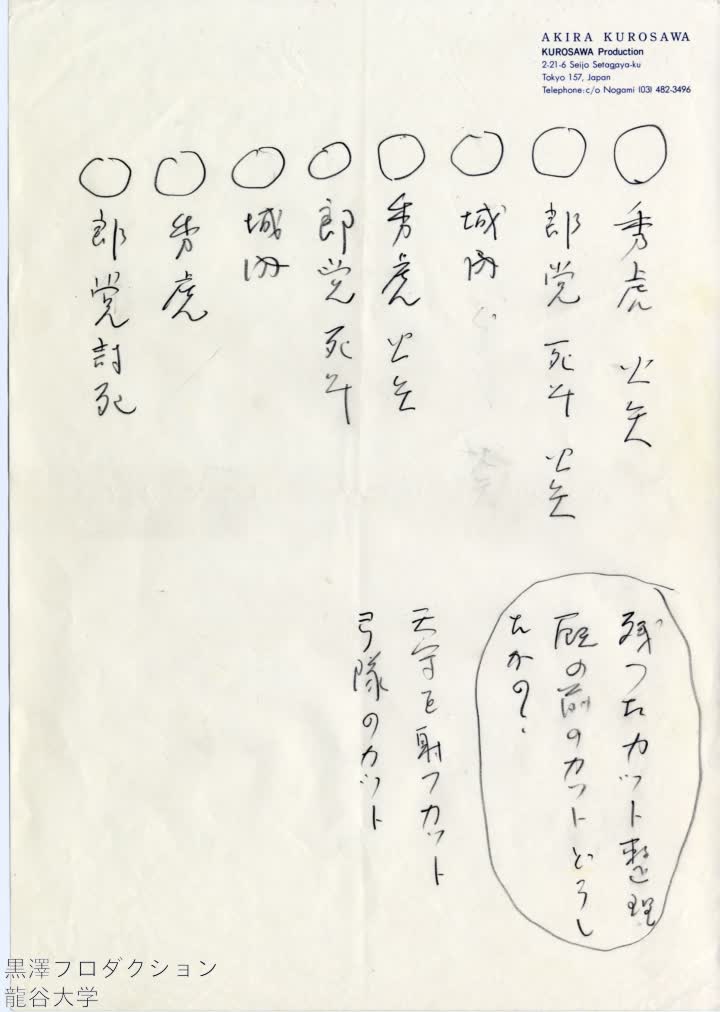 AKIRA KUROSAWA
KUROSAWA Production
2-21-6 Seijo Setagaya-ku
Tokyo 157, Japan
Telephone: c/o Nogami (03) 482-3496
○ 秀虎 火矢
○ 郎党 死斗 火矢
○ 城内
○ 秀虎 火矢
○ 郎党 死斗
○ 城内
○ 秀虎
○ 郎党討死
残つたカット整理
厩の前のカットどうし
たかの?
天守を射つカット
弓隊のカット
黒澤プロダクション
龍谷大学